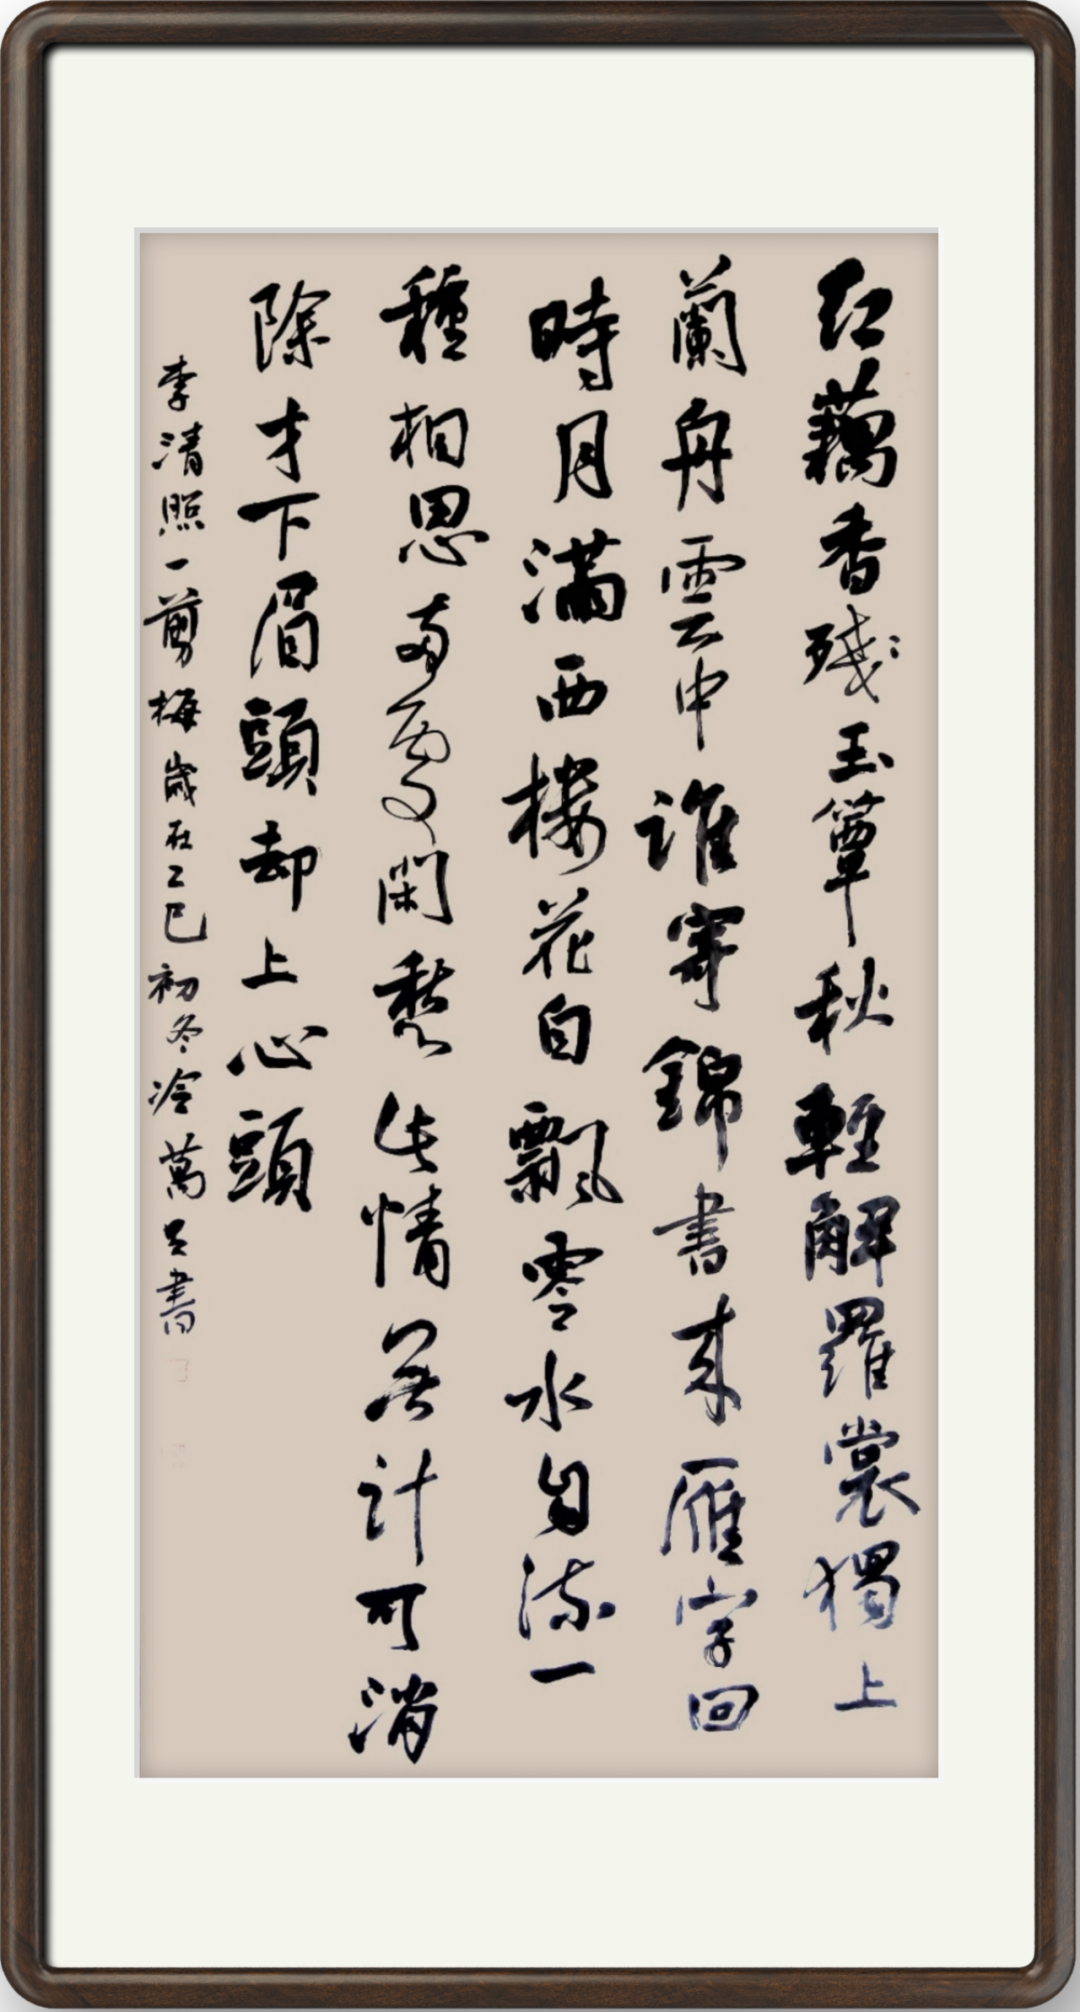 红藕香殘玉簟秋輕解羅裳獨上
蘭舟雲中誰寄錦書來雁字回
時月滿西樓花自飄零水自流一
種相思两處閑愁此情無計可消
除才下眉頭却上心頭
李清照一剪梅歲在乙巳初冬冷萬書